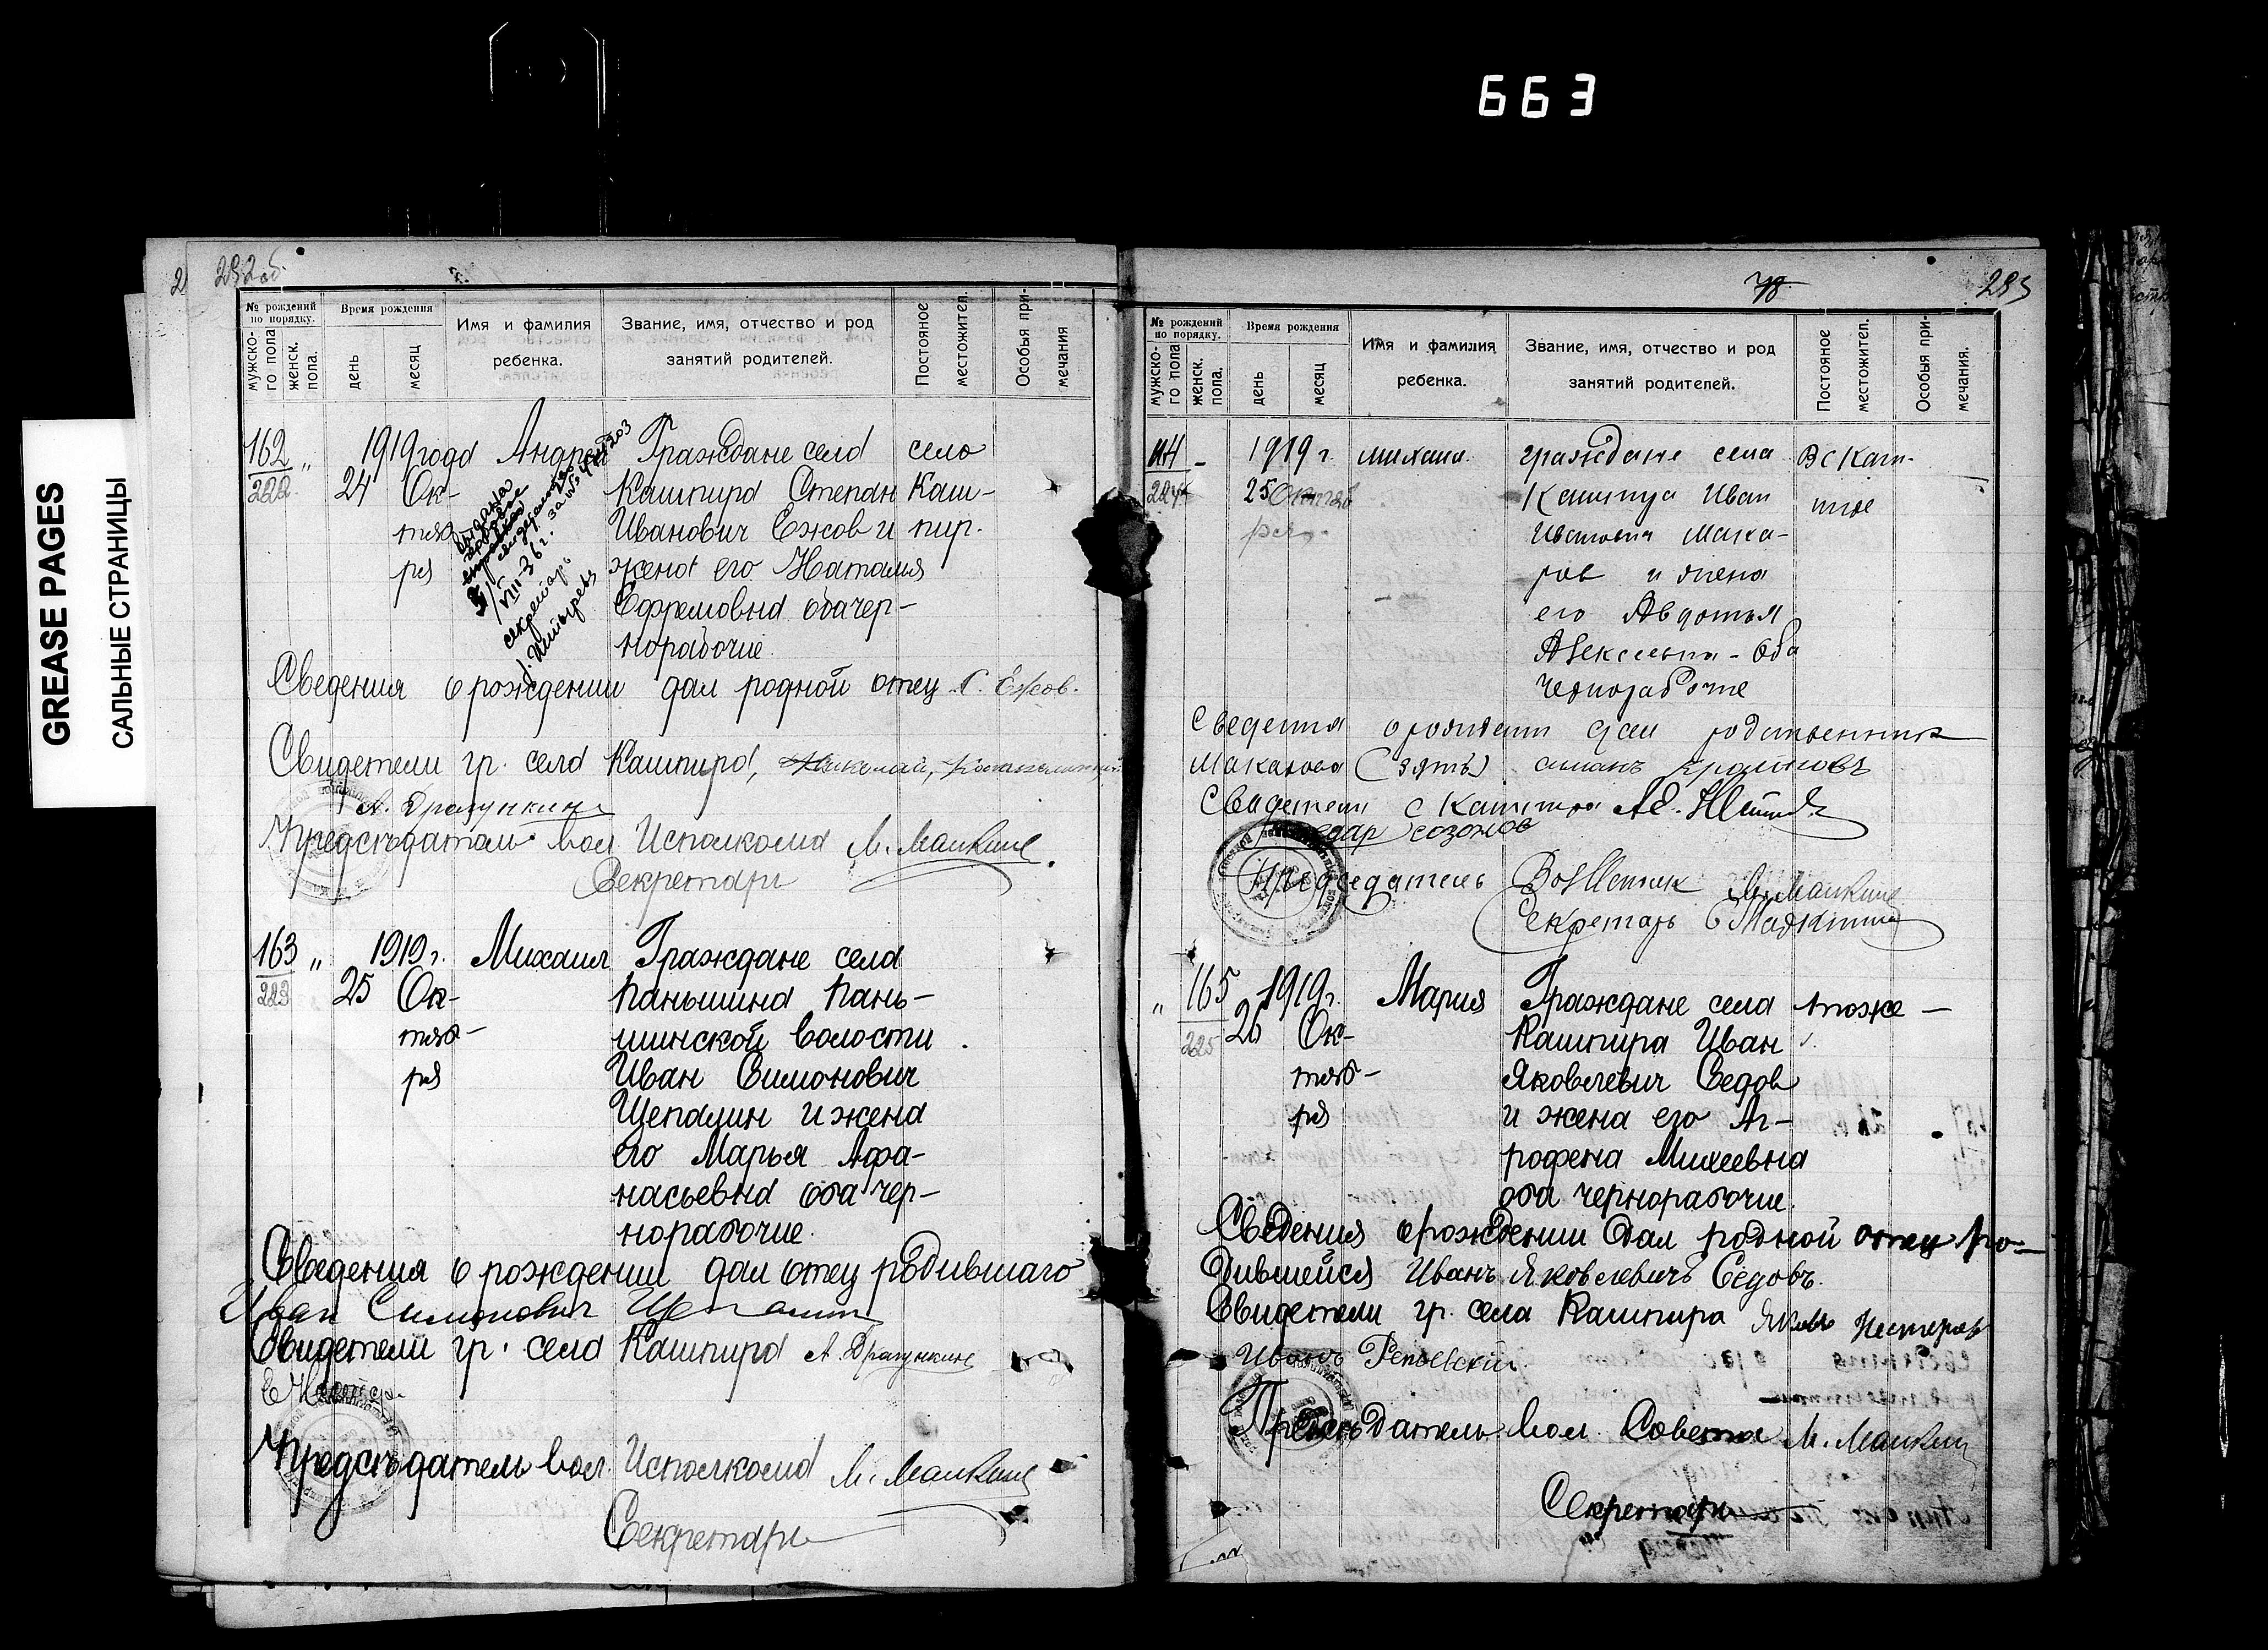 663
GREASE PAGES
САЛЬНЫЕ СТРАНИЦЫ
282 об.
№ рождений по порядку.
мужско-го пола
женск. пола.
Время рождения
день
месяц
Имя и фамилия ребенка.
Звание, имя, отчество и род занятий родителей.
Постояное местожител.
Особыя при-мечания
162 " 1919 года Андрей Граждане села село
222 24 Ок- Кашпира Степан Каш-
тяб Иванович Ежов и пир.
ря жена его Наталия
Ефремовна оба чер-
норабочие.
выдана
VIII-36 г.
секретарь
Сведения о рождении дал родной отец С. Ежов.
Свидетели гр. села Кашпира,
А. Драгункин
Председатель вол. Исполкома М. Маикин
Секретарь
163 " 1919 г. Михаил Граждане села
223 25 Ок- Паньшина Пань-
тяб- шинской волости
ря Иван Симонович
Щепалин и жена
его Марья Афа-
насьевна оба чер-
норабочие.
Сведения о рождении дал отец родившаго
Иван Симонович Щепалин
Свидетели гр. села Кашпира А. Драгункин
Председатель вол. Исполкома М. Маикин
Секретарь
78
283
№ рождений по порядку.
мужско-го пола
женск. пола.
Время рождения
день
месяц
Имя и фамилия ребенка.
Звание, имя, отчество и род занятий родителей.
Постояное местожител.
Особыя при-мечания.
164 - 1919 г. михаил граждане села В с Каш-
224 25 Октяб Кашпира Иван пире
ря Иванович Мака-
ров и жена
его Авдотья
Алексеевна - оба
чернорабочие
Сведения о рождении дал родственник
Макарова (зять)
Свидетели с Кашпира
созонов
Председатель М. Маикин
Секретарь
" 165 1919 г. Мария Граждане села тоже -
225 26 Ок- Кашпира Иван
тяб- Яковлевич Седов
ря и жена его Аг-
рофена Михеевна
оба чернорабочие.
Сведения о рождении дал родной отец ро-
дившейся Иванъ Яковлевичъ Седовъ.
Свидетели гр. села Кашпира Яковъ Нестеровъ
Иванъ Репьевский.
Председатель вол. Совета М. Маикин
Секретарь